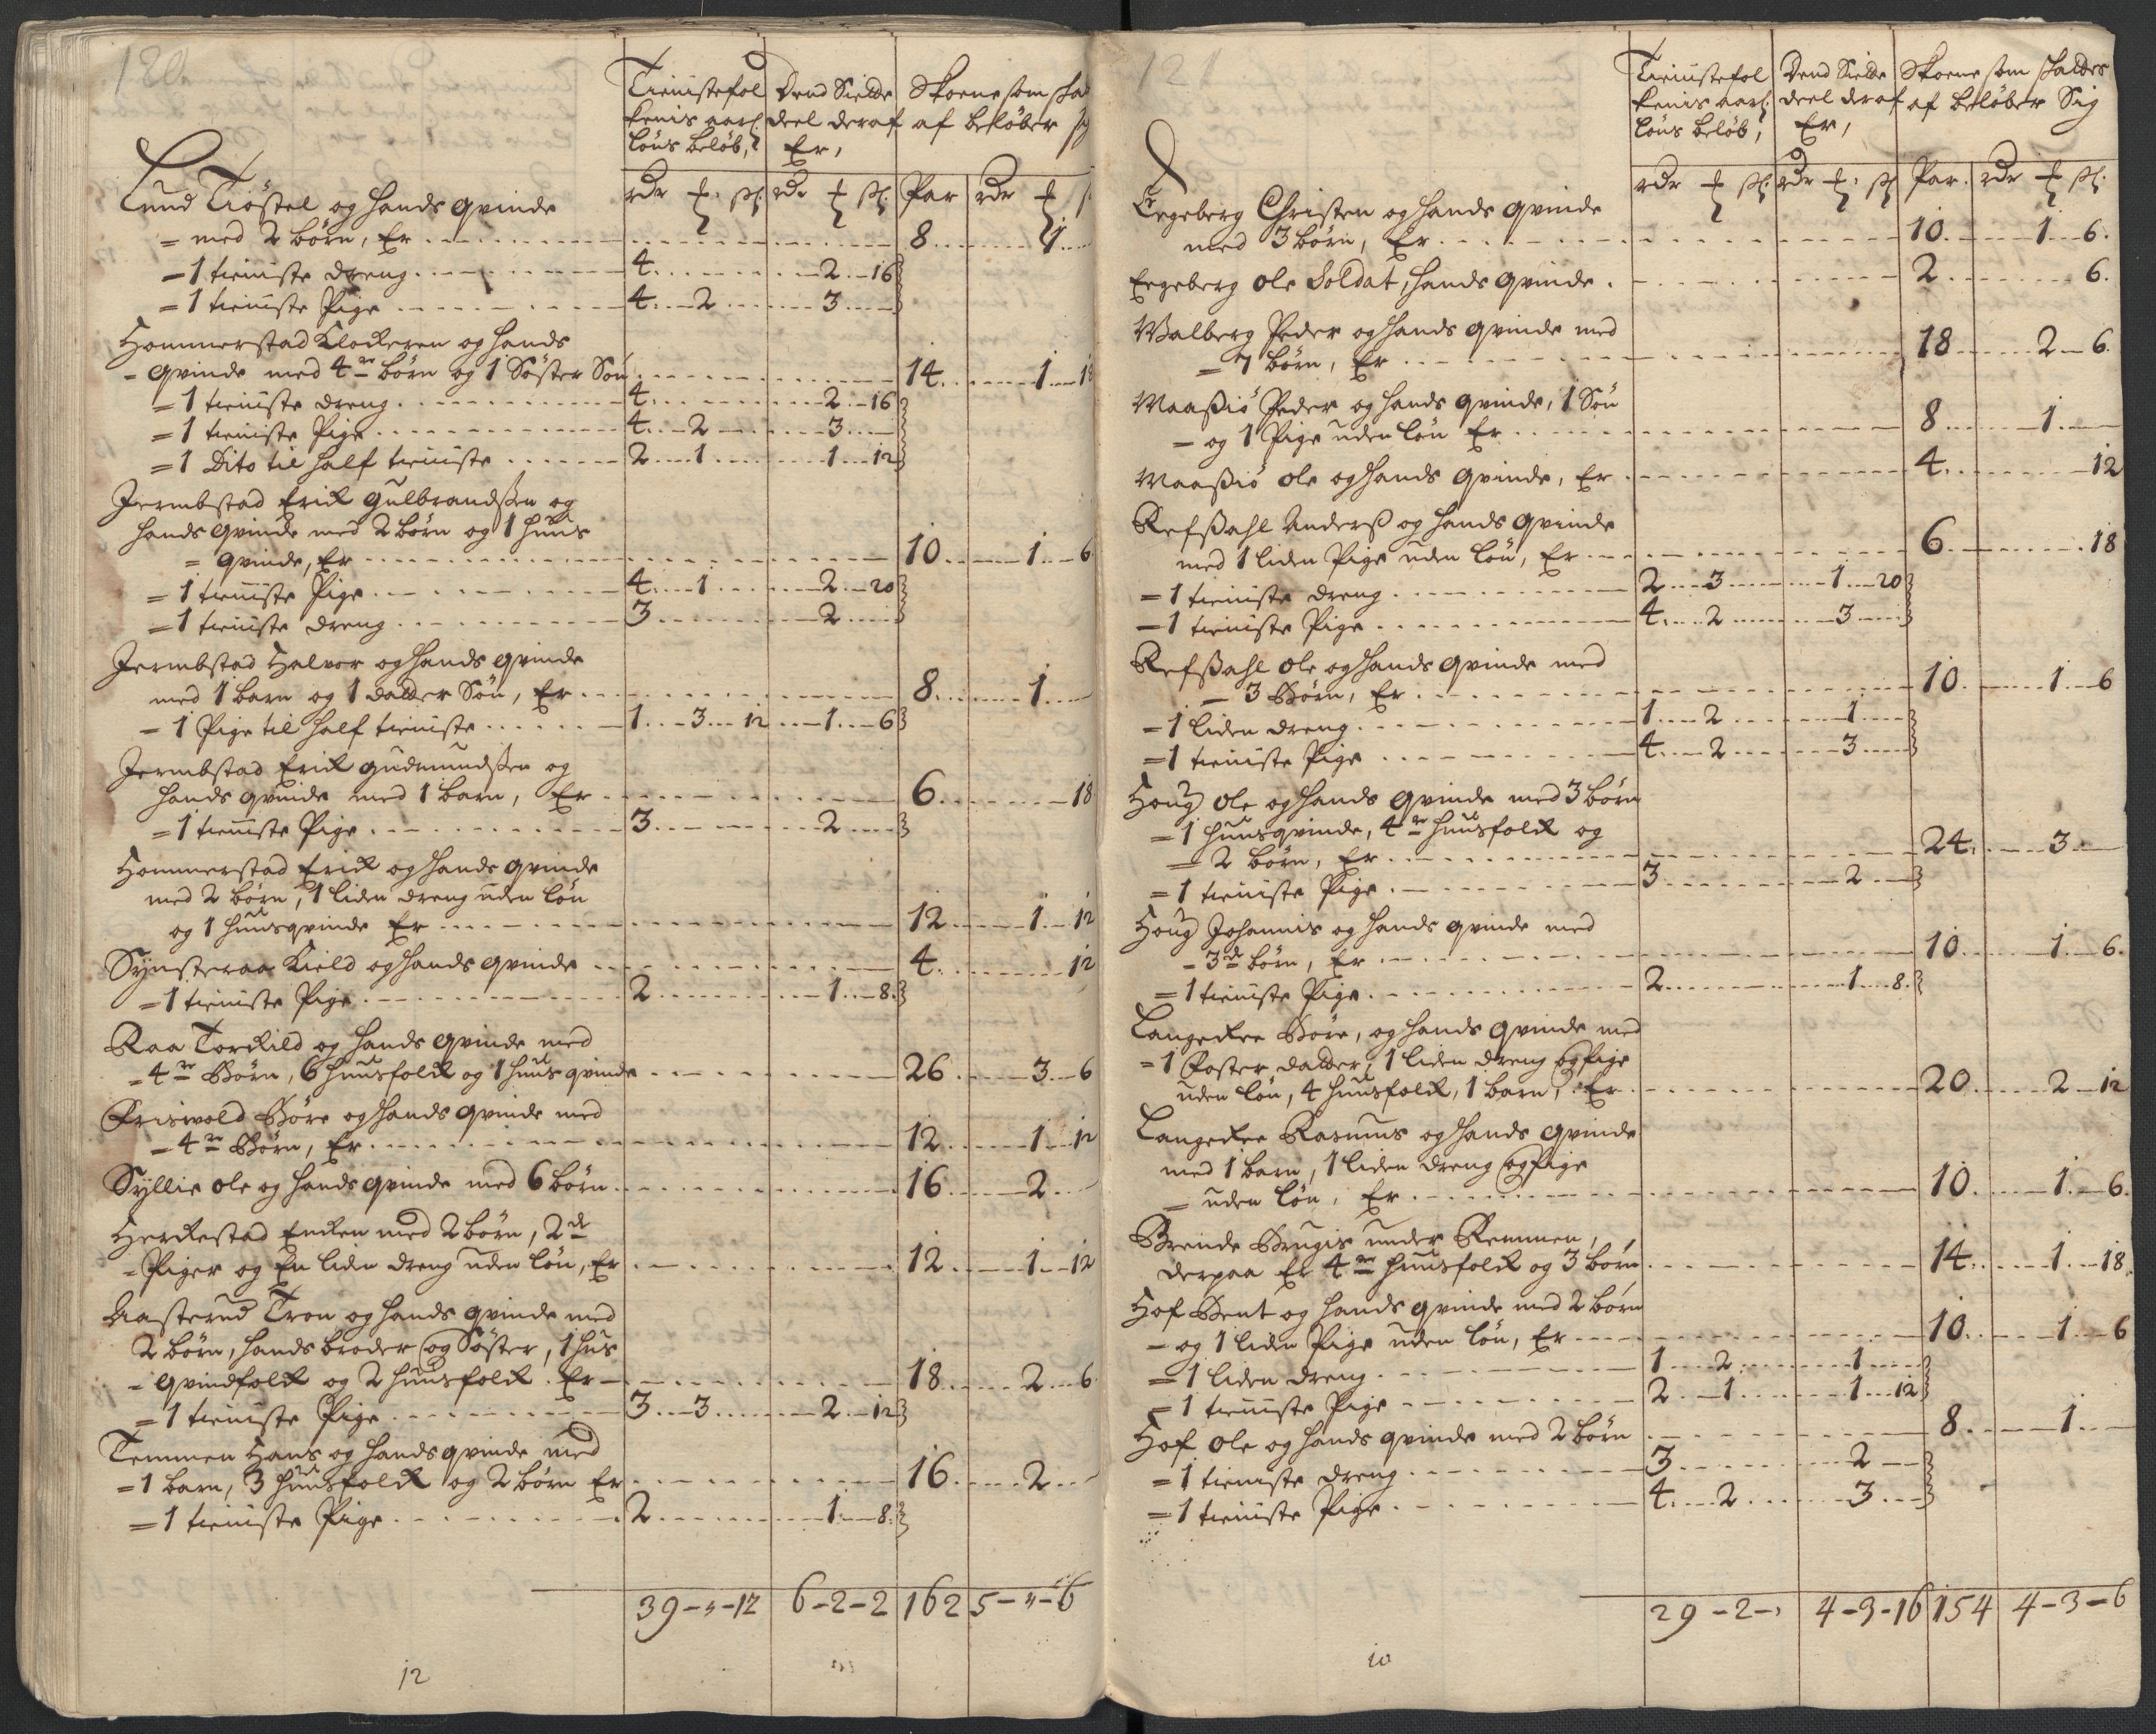 180
Tienistefol Dend Siette Skoene som skal
kenis aarl: deel deraf af beløber s
Løns beløb, Er,
rdr ƶ: sk: rdr ƶ sk: Par rdr ƶ s
Lund Tiöstel og hands qvinde
= med 2 börn, Er 8 1
= 1 tieniste dreng 4 2 16
= 1 tieniste Pige 4 2 3
Hommerstad Klockeren og hands
- qvinde med 4re börn og 1 Söster Sön 14 1 18
= 1 tieniste dreng 4 2 16
= 1 tieniste Pige 4 2 3
= 1 Dito til half tieniste 2 1 1 12
Jermbstad Erick Gulbrandßen og
hands qvinde med 2 börn og 1 huus
= qvinde, Er 10 1 6
= 1 tieniste Pige 4 1 2 20
= 1 tieniste dreng 3 2
Jermbstad Halvor og hands qvinde
med 1 barn og 1 datter Sön, Er 8 1
- 1 Pige til half tieniste 1 3 12 1 6
Jermbstad Erick Gudmundßen og
hands qvinde med 1 barn, Er 6 18
= 1 tieniste Pige 3 2
Hommerstad Erick og hands qvinde
med 2 börn, 1 liden dreng uden lön
og 1 huusqvinde Er 12 1 12
Synsteraa Kield og hands qvinde 4 12
= 1 tieniste Pige 2 1 8
Raa Torckild og hands qvinde med
= 4re Börn, 6 huusfolck og 1 huus qvinde 26 3 6
Friswold Böre og hands qvinde med
= 4re Börn, Er 12 1 12
Syllie ole og hands qvinde med 6 börn 16 2
Herckestad Encken med 2 börn, 2de
= Piger og En liden dreng uden lön, Er 12 1 12
Aasterud Tron og hands qvinde med
2 börn, hands broder og Söster, 1 hus
= qvindfolck og 2 huusfolck. Er 18 2 6
= 1 tieniste Pige 3 3 2 12
Temmen Hans og hands qvinde med
= 1 barn, 3 huusfolck og 2 börn Er 16 2
= 1 tieniste Pige 2 1 8
39 - " - 12 6 - 2 - 2 162 5 - " - 6
12
121
Tienistefol Dend Siette Skoene som skaldes
kenis aarl: deel deraf af beløber Sig
Løns beløb, Er,
rdr ƶ sk: rdr ƶ: sk Par: rdr ƶ sk:
Egeberg Christen og hands qvinde
med 3 börn, Er 10 1 6
Egeberg ole Soldat, hands qvinde 2 6
Walberg Peder og hands qvinde med
= 7 börn, Er 18 2 6
Maaßiö Peder og hands qvinde, 1 Sön
= og 1 Pige uden lön Er 8 1
Maaßiö ole og hands qvinde, Er 4 12
Refßahl Anderß og hands qvinde
med 1 liden Pige uden lön, Er 6 18
= 1 tieniste dreng 2 3 1 20
= 1 tieniste Pige 4 2 3
Refßahl ole og hands qvinde med
= 3 Börn, Er 10 1 6
= 1 liden dreng 1 2 1
= 1 tieniste Pige 4 2 3
Houg ole og hands qvinde med 3 börn
= 1 huusqvinde, 4re huusfolck og
= 2 börn, Er 24 3
= 1 tieniste Pige 3 2
Houg Johannis og hands qvinde med
- 3de börn, Er 10 1 6
= 1 tieniste Pige 2 1 8
Langekee Böre, og hands qvinde med
= 1 Foster datter, 1 liden dreng og Pige
uden lön, 4 huusfolck, 1 barn, Er 20 2 12
Langekee Rasmus og hands qvinde
med 1 barn, 1 liden dreng og Pige
= uden lön, Er 10 1 6
Brende Brugis under Remmen,
derpaa Er 4re huusfolck og 3 börn 14 1 18
Hof Bent og hands qvinde med 2 börn
= og 1 liden Pige uden lön, Er 10 1 6
= 1 liden dreng 1 2 1
= 1 tieniste Pige 2 1 1 12
Hof ole og hands qvinde med 2 börn 8 1
= 1 tieniste dreng 3 2
= 1 tieniste Pige 4 2 3
29 - 2 - " 4 - 3 - 16 154 4 - 3 - 6
10